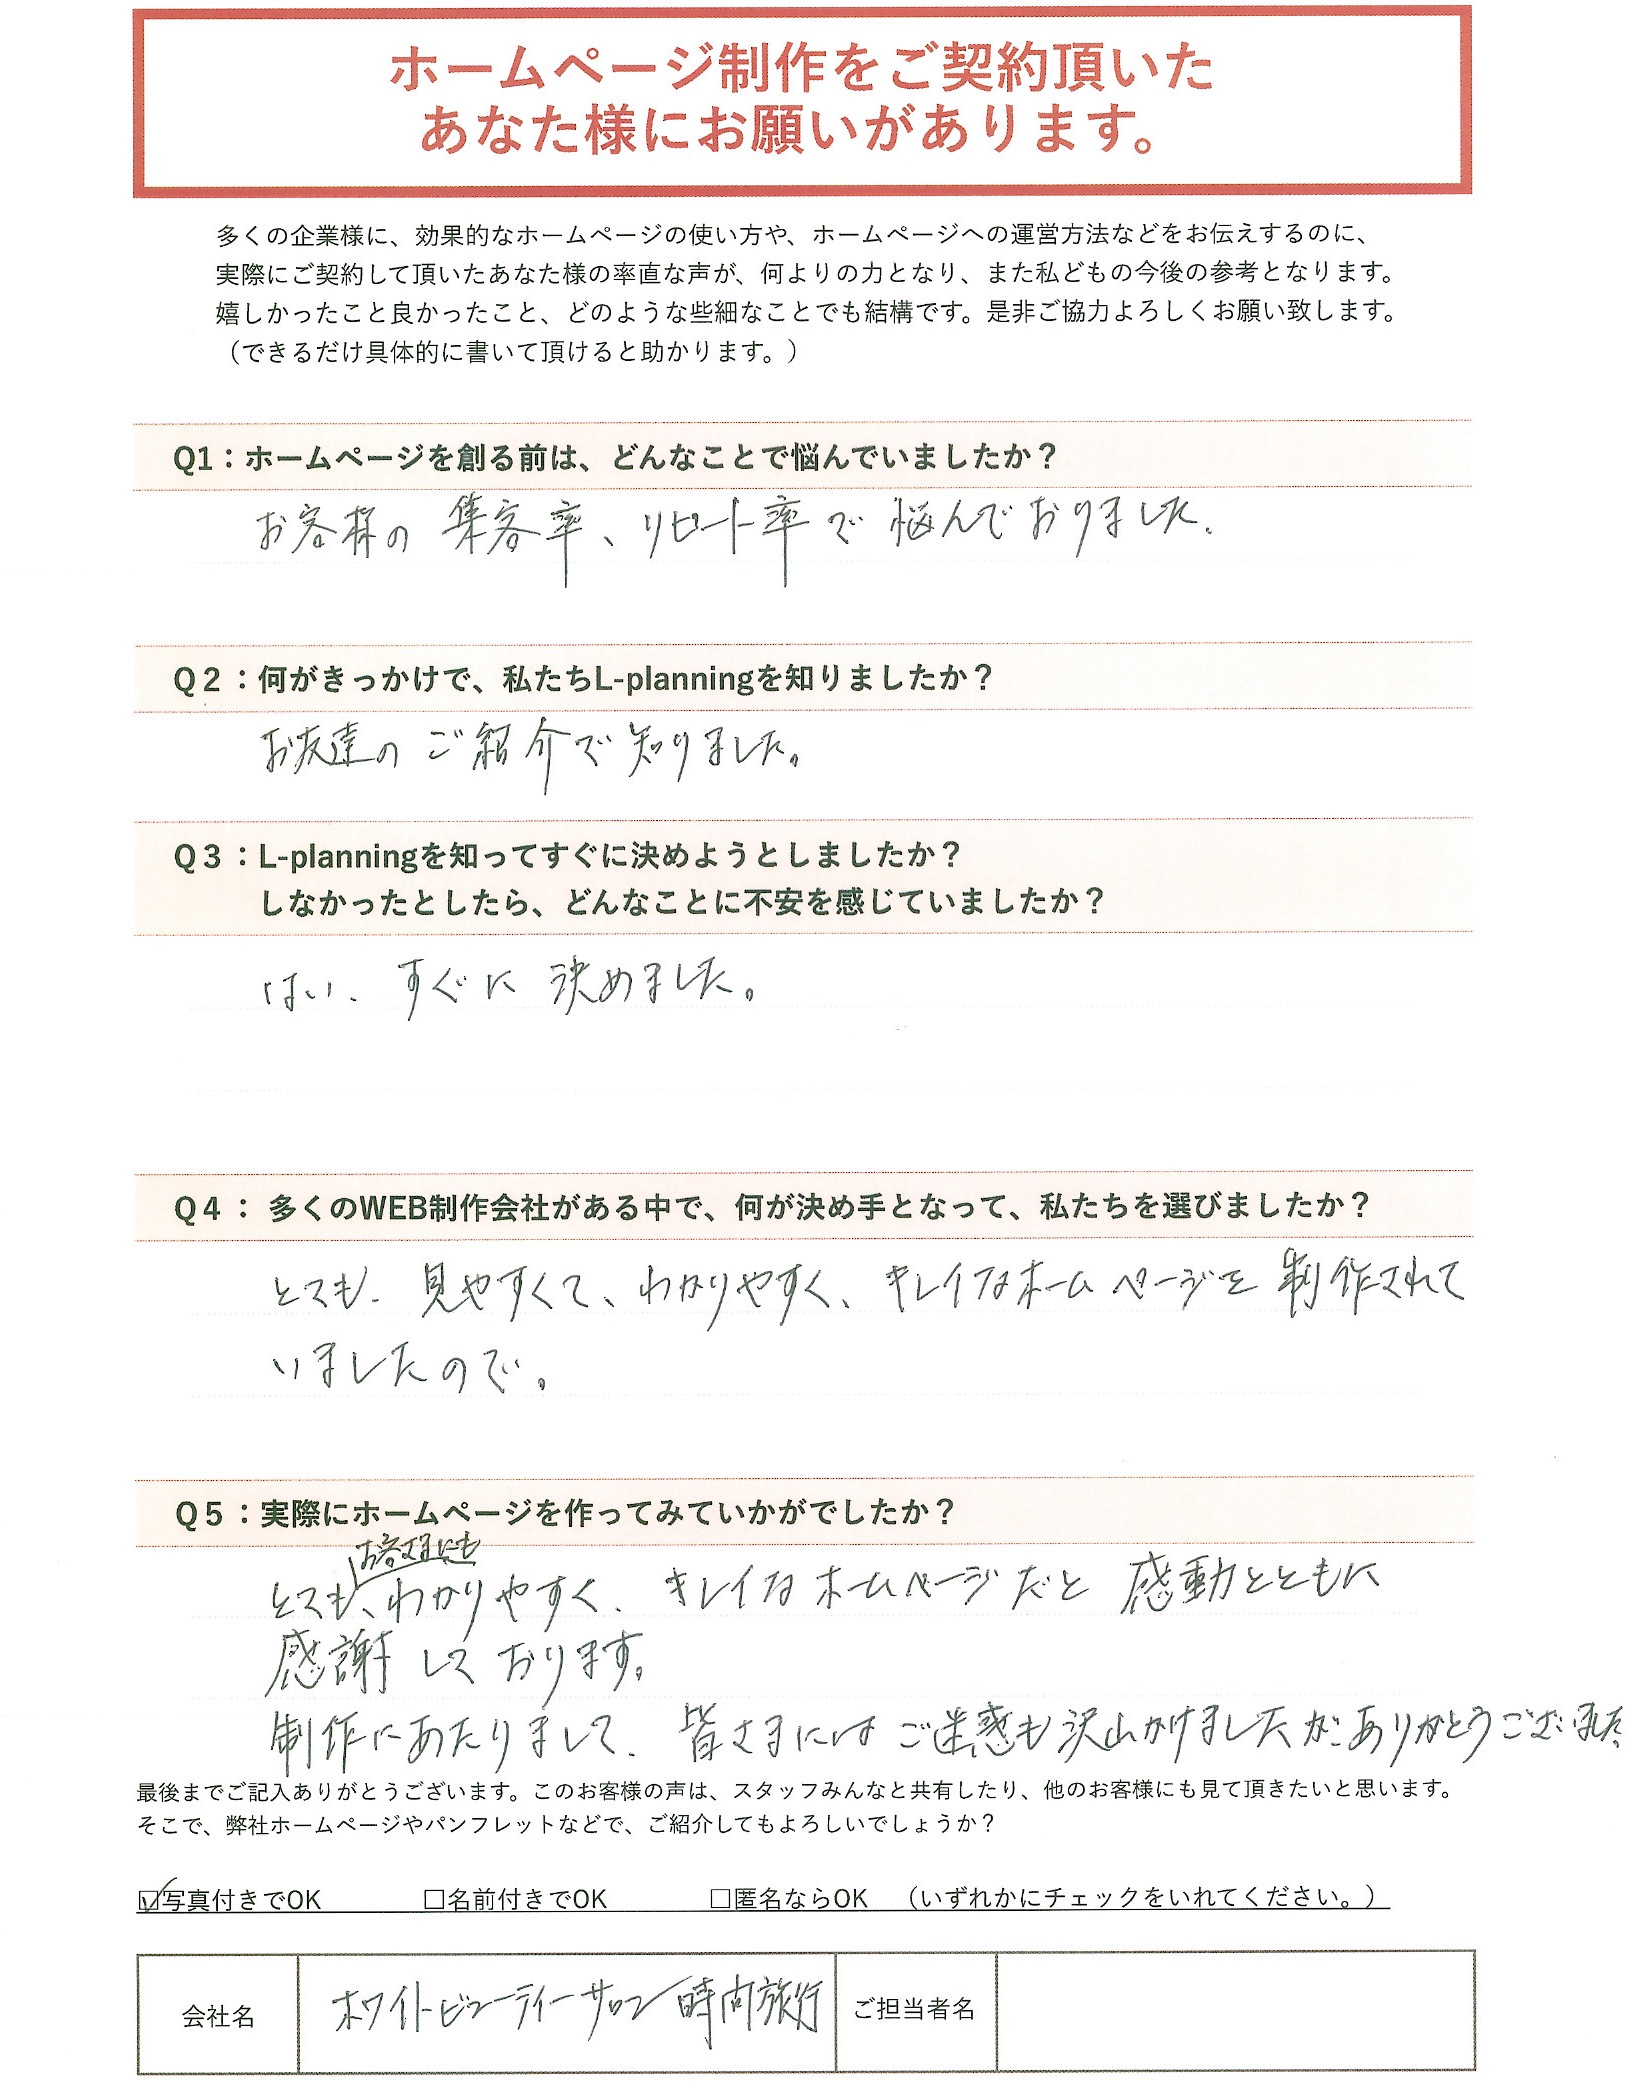 ホームページ制作をご契約頂いた
あなた様にお願いがあります。
多くの企業様に、効果的なホームページの使い方や、ホームページへの運営方法などをお伝えするのに、
実際にご契約して頂いたあなた様の率直な声が、何よりの力となり、また私どもの今後の参考となります。
嬉しかったこと良かったこと、どのような些細なことでも結構です。是非ご協力よろしくお願い致します。
（できるだけ具体的に書いて頂けると助かります。）
Q1：ホームページを創る前は、どんなことで悩んでいましたか？
お客様の 集客率、リピート率で 悩んでおりました.
Q２：何がきっかけで、私たちL-planningを知りましたか？
お友達の ご紹介で知りました。
Q３：L-planningを知ってすぐに決めようとしましたか？
しなかったとしたら、どんなことに不安を感じていましたか？
はい、すぐに 決めました。
Q４： 多くのWEB制作会社がある中で、何が決め手となって、私たちを選びましたか？
とても、見やすくて、わかりやすく、キレイなホームページを 制作されて
いましたので。
Q５：実際にホームページを作ってみていかがでしたか？
お客さまにも
とても、わかりやすく、キレイなホームページだと 感動とともに
感謝しております。
制作にあたりまして、皆さまにはご迷惑も沢山かけましたが、ありがとうございました
最後までご記入ありがとうございます。このお客様の声は、スタッフみんなと共有したり、他のお客様にも見て頂きたいと思います。
そこで、弊社ホームページやパンフレットなどで、ご紹介してもよろしいでしょうか？
☑写真付きでOK □名前付きでOK □匿名ならOK （いずれかにチェックをいれてください。）
会社名 ホワイトビューティーサロン 時間旅行 ご担当者名